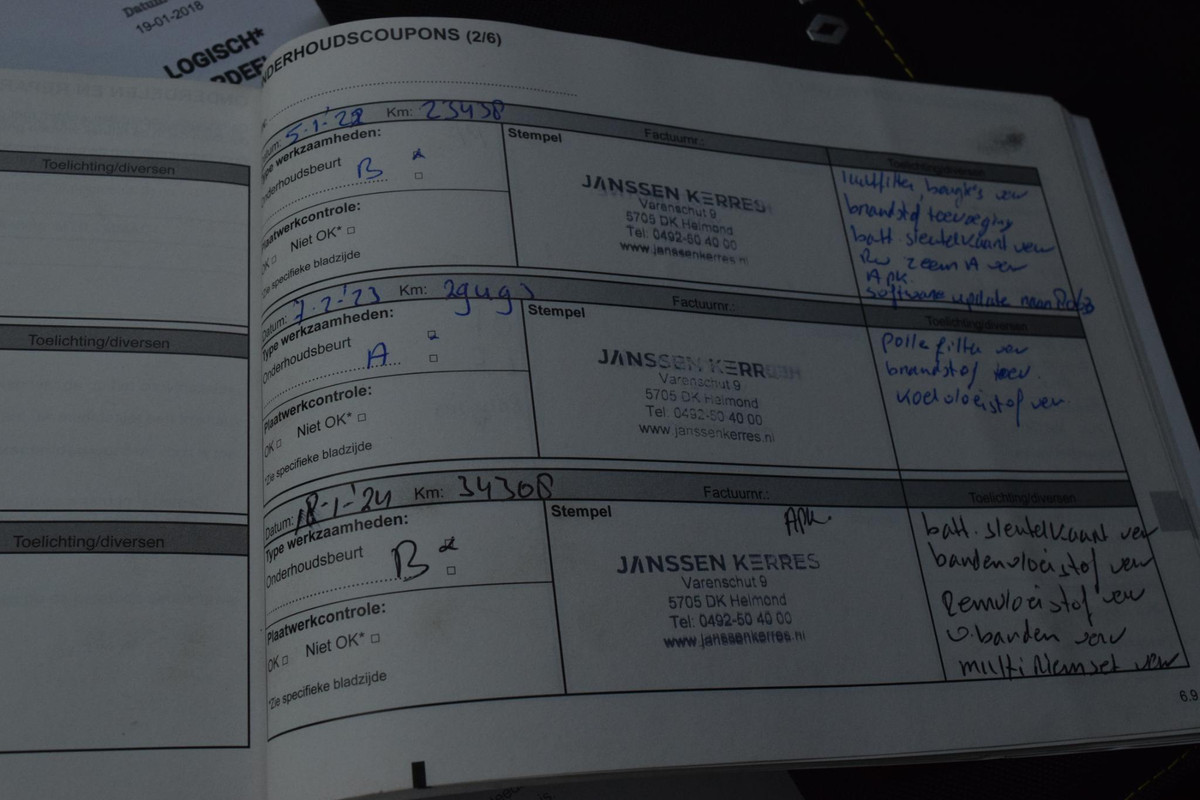 Datum
19-01-2018
LOGISCH*
Toelichting/diversen
Toelichting/diversen
Toelichting/diversen
NDERHOUDSCOUPONS (2/6)
atum: 5-1-'22 Km: 23438 Factuurnr.: Toelichting/diversen
Type werkzaamheden:
Onderhoudsbeurt
B
Plaatwerkcontrole:
OK □ Niet OK* □
*Zie specifieke bladzijde
Stempel
JANSSEN KERRES
Varenschut 9
5705 DK Helmond
Tel: 0492-50 40 00
www.janssenkerres.nl
luchtfilter, bougies ver
brandstof toevoeging
batt. sleutelkaart ver
APK
software update
Datum: 7-2-'23 Km: Factuurnr.: Toelichting/diversen
Type werkzaamheden:
Onderhoudsbeurt
A
Plaatwerkcontrole:
OK □ Niet OK* □
*Zie specifieke bladzijde
Stempel
JANSSEN KERRES
Varenschut 9
5705 DK Helmond
Tel: 0492-50 40 00
www.janssenkerres.nl
Pollefilter ver
brandstof toev.
koelvloeistof ver.
Datum: 18-1-'24 Km: 34308 Factuurnr.: Toelichting/diversen
Type werkzaamheden:
Onderhoudsbeurt
B
Plaatwerkcontrole:
OK □ Niet OK* □
*Zie specifieke bladzijde
Stempel
APK
JANSSEN KERRES
Varenschut 9
5705 DK Helmond
Tel: 0492-50 40 00
www.janssenkerres.nl
batt. sleutelkaart ver
bandenvloeistof ver
Remvloeistof ver
v.banden ver
multiriemset ver
6.9